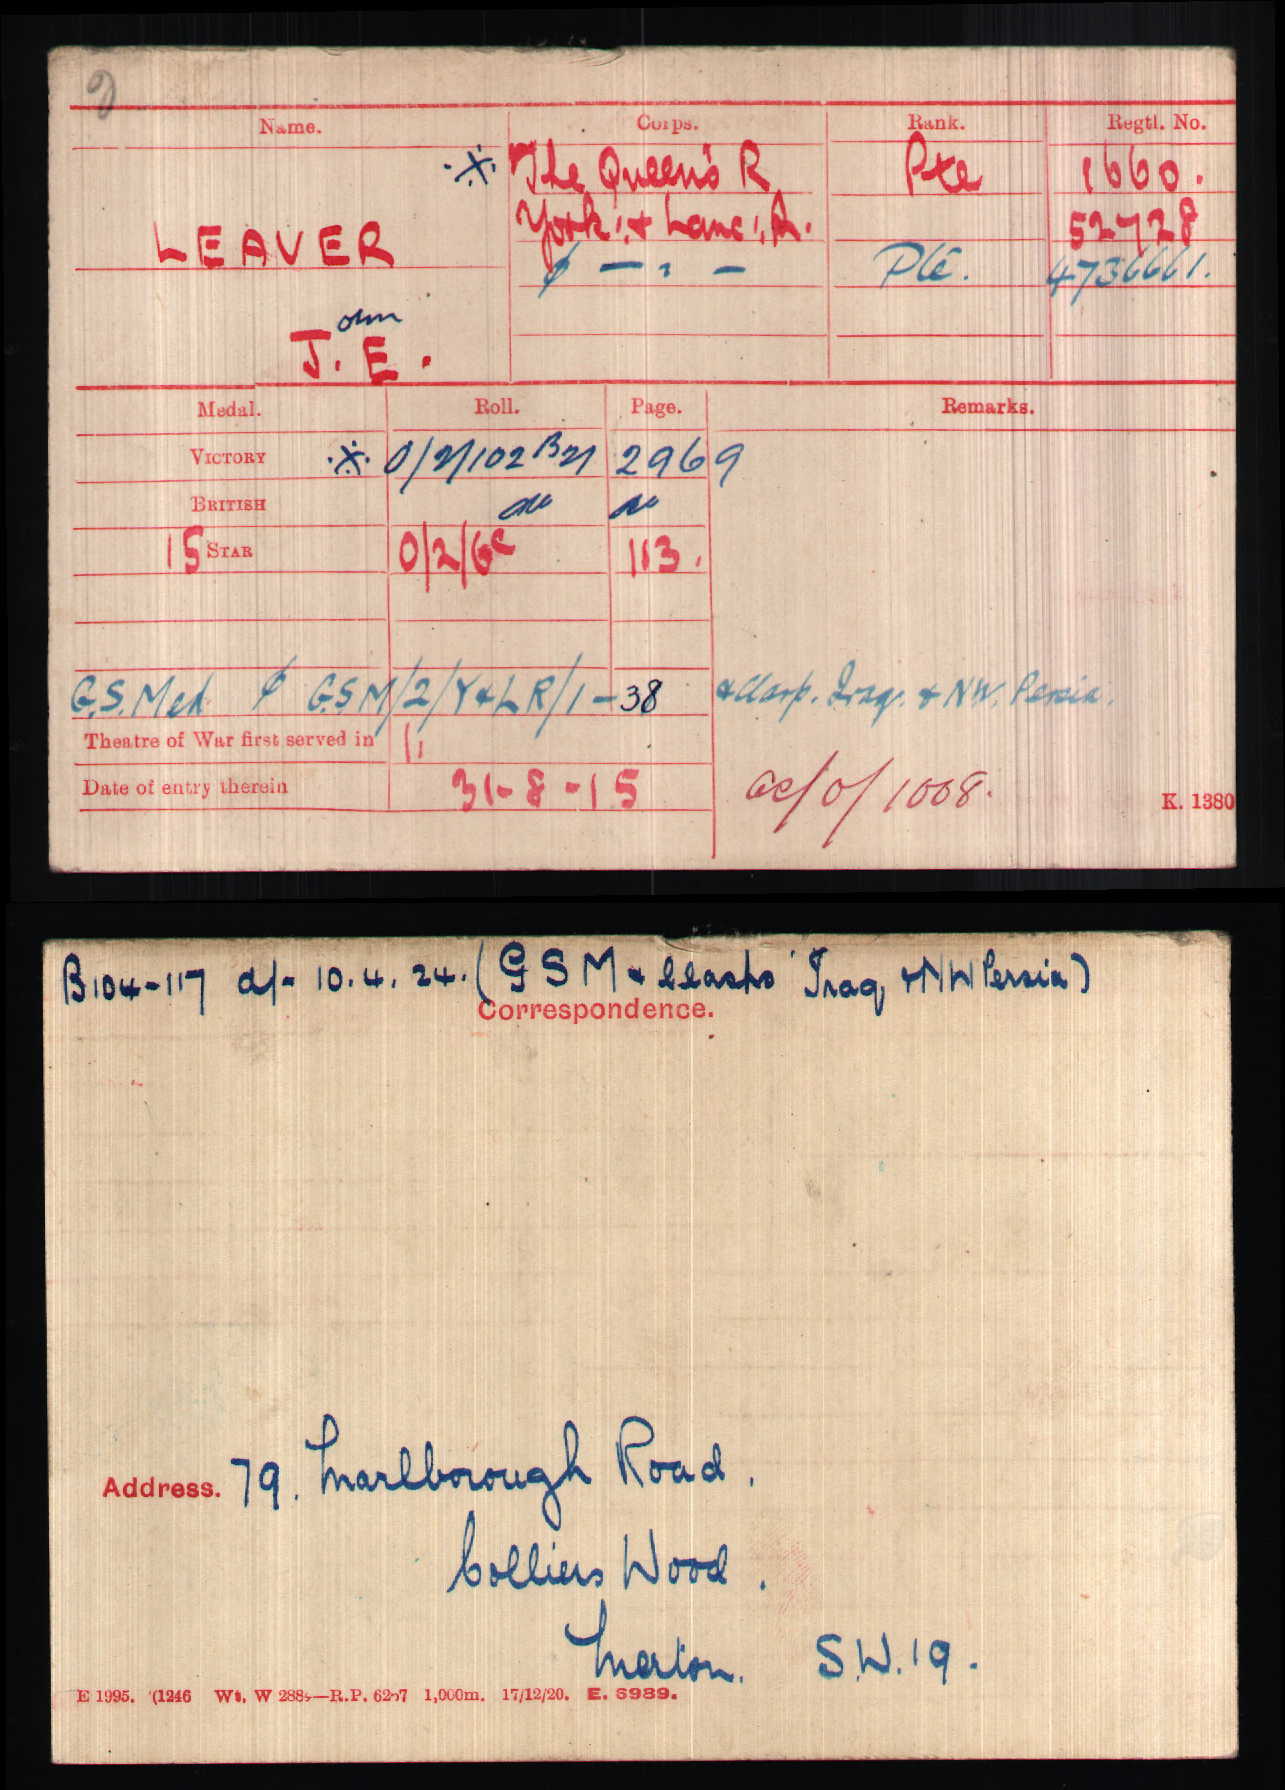 Name. Corps. Rank. Regtl. No.
※ The Queen's R Pte 1660.
York: & Lanc: R. 52728
LEAVER
φ — " — Pte. 4736661.
ohn
J. E.
Medal. Roll. Page. Remarks.
VICTORY ※ O/2/102 B21 2969
BRITISH do do
15 STAR O/2/6C 113.
G.S. Med φ G.S.M/2/Y&LR/1 - 38 & Clasp. Iraq. & N.W. Persia.
Theatre of War first served in
Date of entry therein 31-8-15 /0/1008. K. 1380
B104-117 d/- 10.4.24. (GSM & Clasps Iraq & NW Persia)
Correspondence.
Address. 79. Marlborough Road.
Colliers Wood.
Merton. S.W.19.
E 1995. (1246 Wt. W 288 —R.P. 62 7 1,000m. 17/12/20. E. 6989.